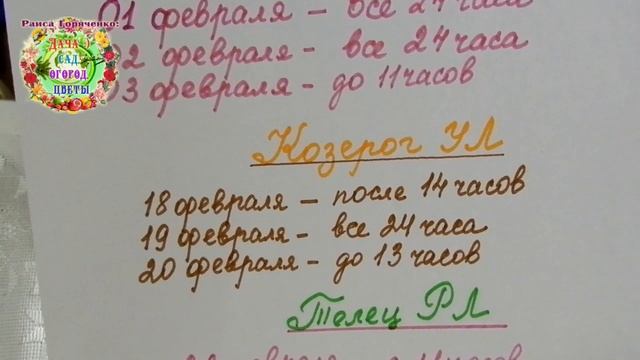 Раиса Горяченко:
ДАЧА
САД
ОГОРОД
ЦВЕТЫ
01 февраля – все 24 часа
02 февраля – все 24 часа
03 февраля – до 11 часов
Козерог УЛ
18 февраля – после 14 часов
19 февраля – все 24 часа
20 февраля – до 13 часов
Телец РЛ